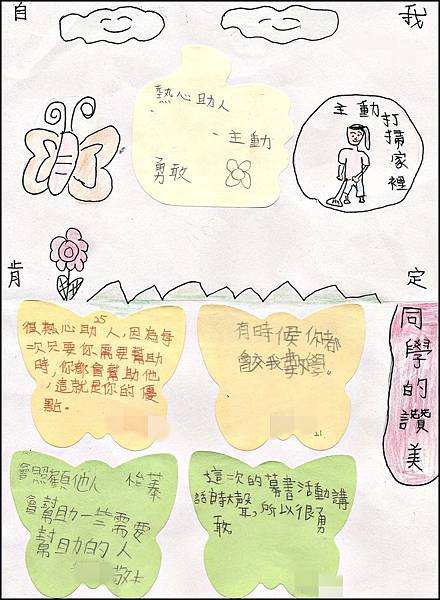 自我
熱心助人
、主動
勇敢
主動打掃家裡
肯定
同學的讚美
25
很熱心助人,因為每
次只要你需要幫助
時,你都會幫助他
,這就是你的優
點。
有時候你都
會教我數學。
21.
會照顧他人 怡蓁
會幫助一些需要
幫助的人
敬上
這一次的募書活動講
話時大聲,所以很勇
敢